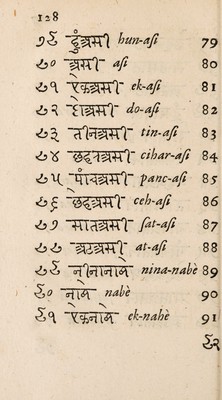 128
७९ हुंअसी hun-aſi 79
८० असी aſi 80
८१ एकअसी ek-aſi 81
८२ दोअसी do-aſi 82
८३ तीनअसी tin-aſi 83
८४ cihar-aſi 84
८५ पांचअसी panc-aſi 85
८६ छहअसी ceh-aſi 86
८७ सातअसी ſat-aſi 87
८८ अटअसी at-aſi 88
८९ nina-nabè 89
९० nabè 90
९१ ek-nahè 91
९२